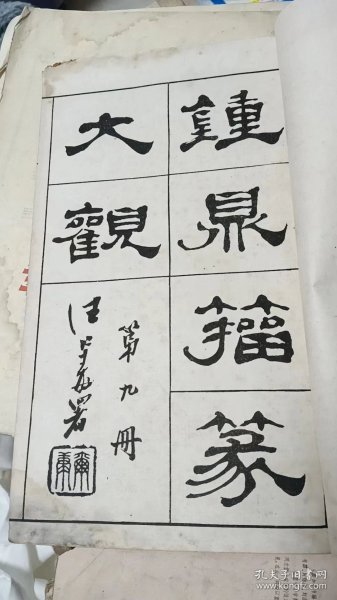 鍾鼎籀篆
大觀
第九冊
汪 署
孔夫子旧书网